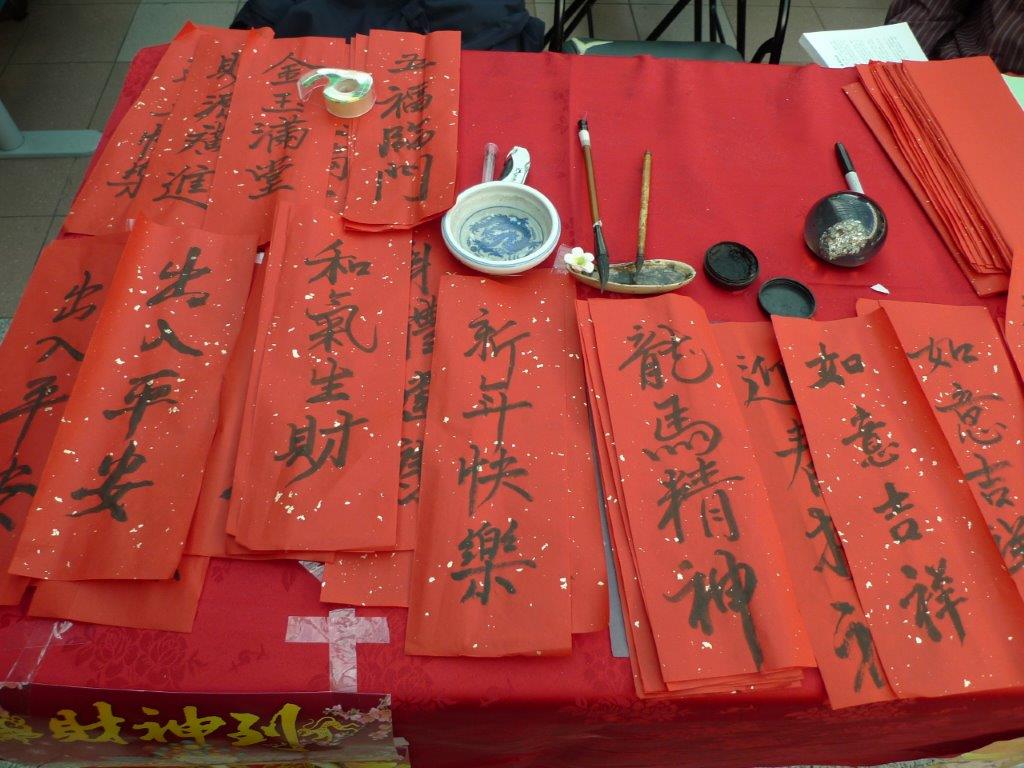 財源廣進
金玉滿堂
五福臨門
出入平安
出入平安
和氣生財
新年快樂
龍馬精神
迎春
如意吉祥
如意吉祥
財神到